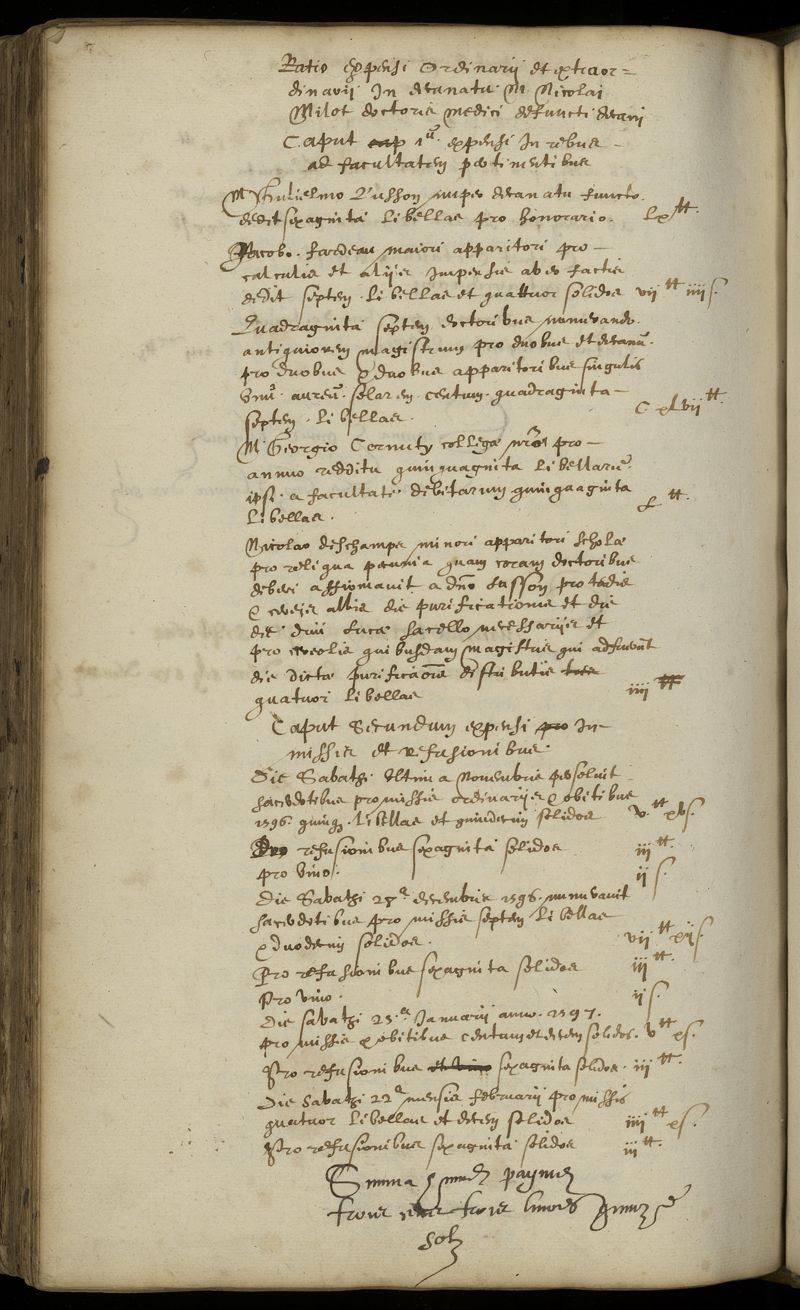 Ratio expensi Ordinarij et extraor=
dinarij In decanatu M. Nicolai
Milot doctoris medici defuncti decani
Caput 1ũ. expensi In rebus
ad facultatem pertinentibus
M Guilielmo Lusson nuper decanatu functo.
dedit sexaginta libellas pro honorario. lx tt.
Jacobo. fardeau maiori apparitori pro
calculis et alijs impensis ab eo factis
dedit septem libellas et quattuor solidos vij tt iiij s.
Quadraginta septem doctoribus numerando.
antiquiorem magistrum pro duobus et decanũ.
pro duobus & duobus apparitoribus singulis
Unũ. aureũ. solarem. centum. quadraginta
septem. libellas. C xlvij tt.
M. Georgio Cornuty collegæ nrõ pro
annuo redditu quinquaginta libellarũ
ipsi. a facultate debitarum quinquaginta
libellas. L tt.
Nicolao deschamps minori apparitori scholæ
pro reliqua pecunia quam coram doctoribus
deberi affirmavit a dno Lusson pro tædis
& cereis albis die purificationis et die
diui Lucæ sacello necessarijs et
pro cereolis quibusdam magistris qui adfuerũt
die dicta purificãois distributis
quatuor libellas iiij tt
Caput Secundum expensi In
missis et refusionibus.
Die Sabathi Ultima Nouembris persoluit
sacerdotibus pro missis ordinarijs & obitibus
1596. quinq. libellas et quindecim solidos v. tt xv s.
Pro refusionibus sexaginta solidos iij tt.
pro vino. ij s.
Die Sabathi 28ª decembris 1596. numerauit
sacerdotibus pro missis septem libellas
& duodecim solidos. vij tt xij s.
Pro refusionibus sexaginta solidos iij tt.
Pro vino. ij s.
Die sabathi 25.ª Januarij anno. 1597.
pro missis & obitibus centum et decem solidos. v tt x s.
Pro refusionibus sexaginta solidos. iij tt.
Die Sabathi 22ª mensis februarij pro missis
quatuor libellas et decem solidos iiij tt x s.
Pro refusionibus sexaginta solidos iij tt.
Summa